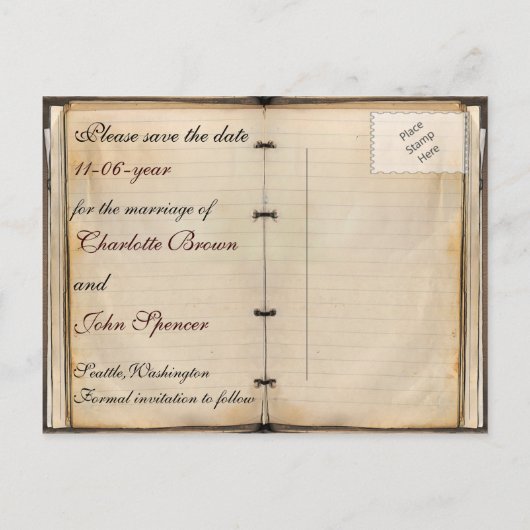 Please save the date
11-06-year
for the marriage of
Charlotte Brown
and
John Spencer
Seattle,Washington
Formal invitation to follow
Place
Stamp
Here